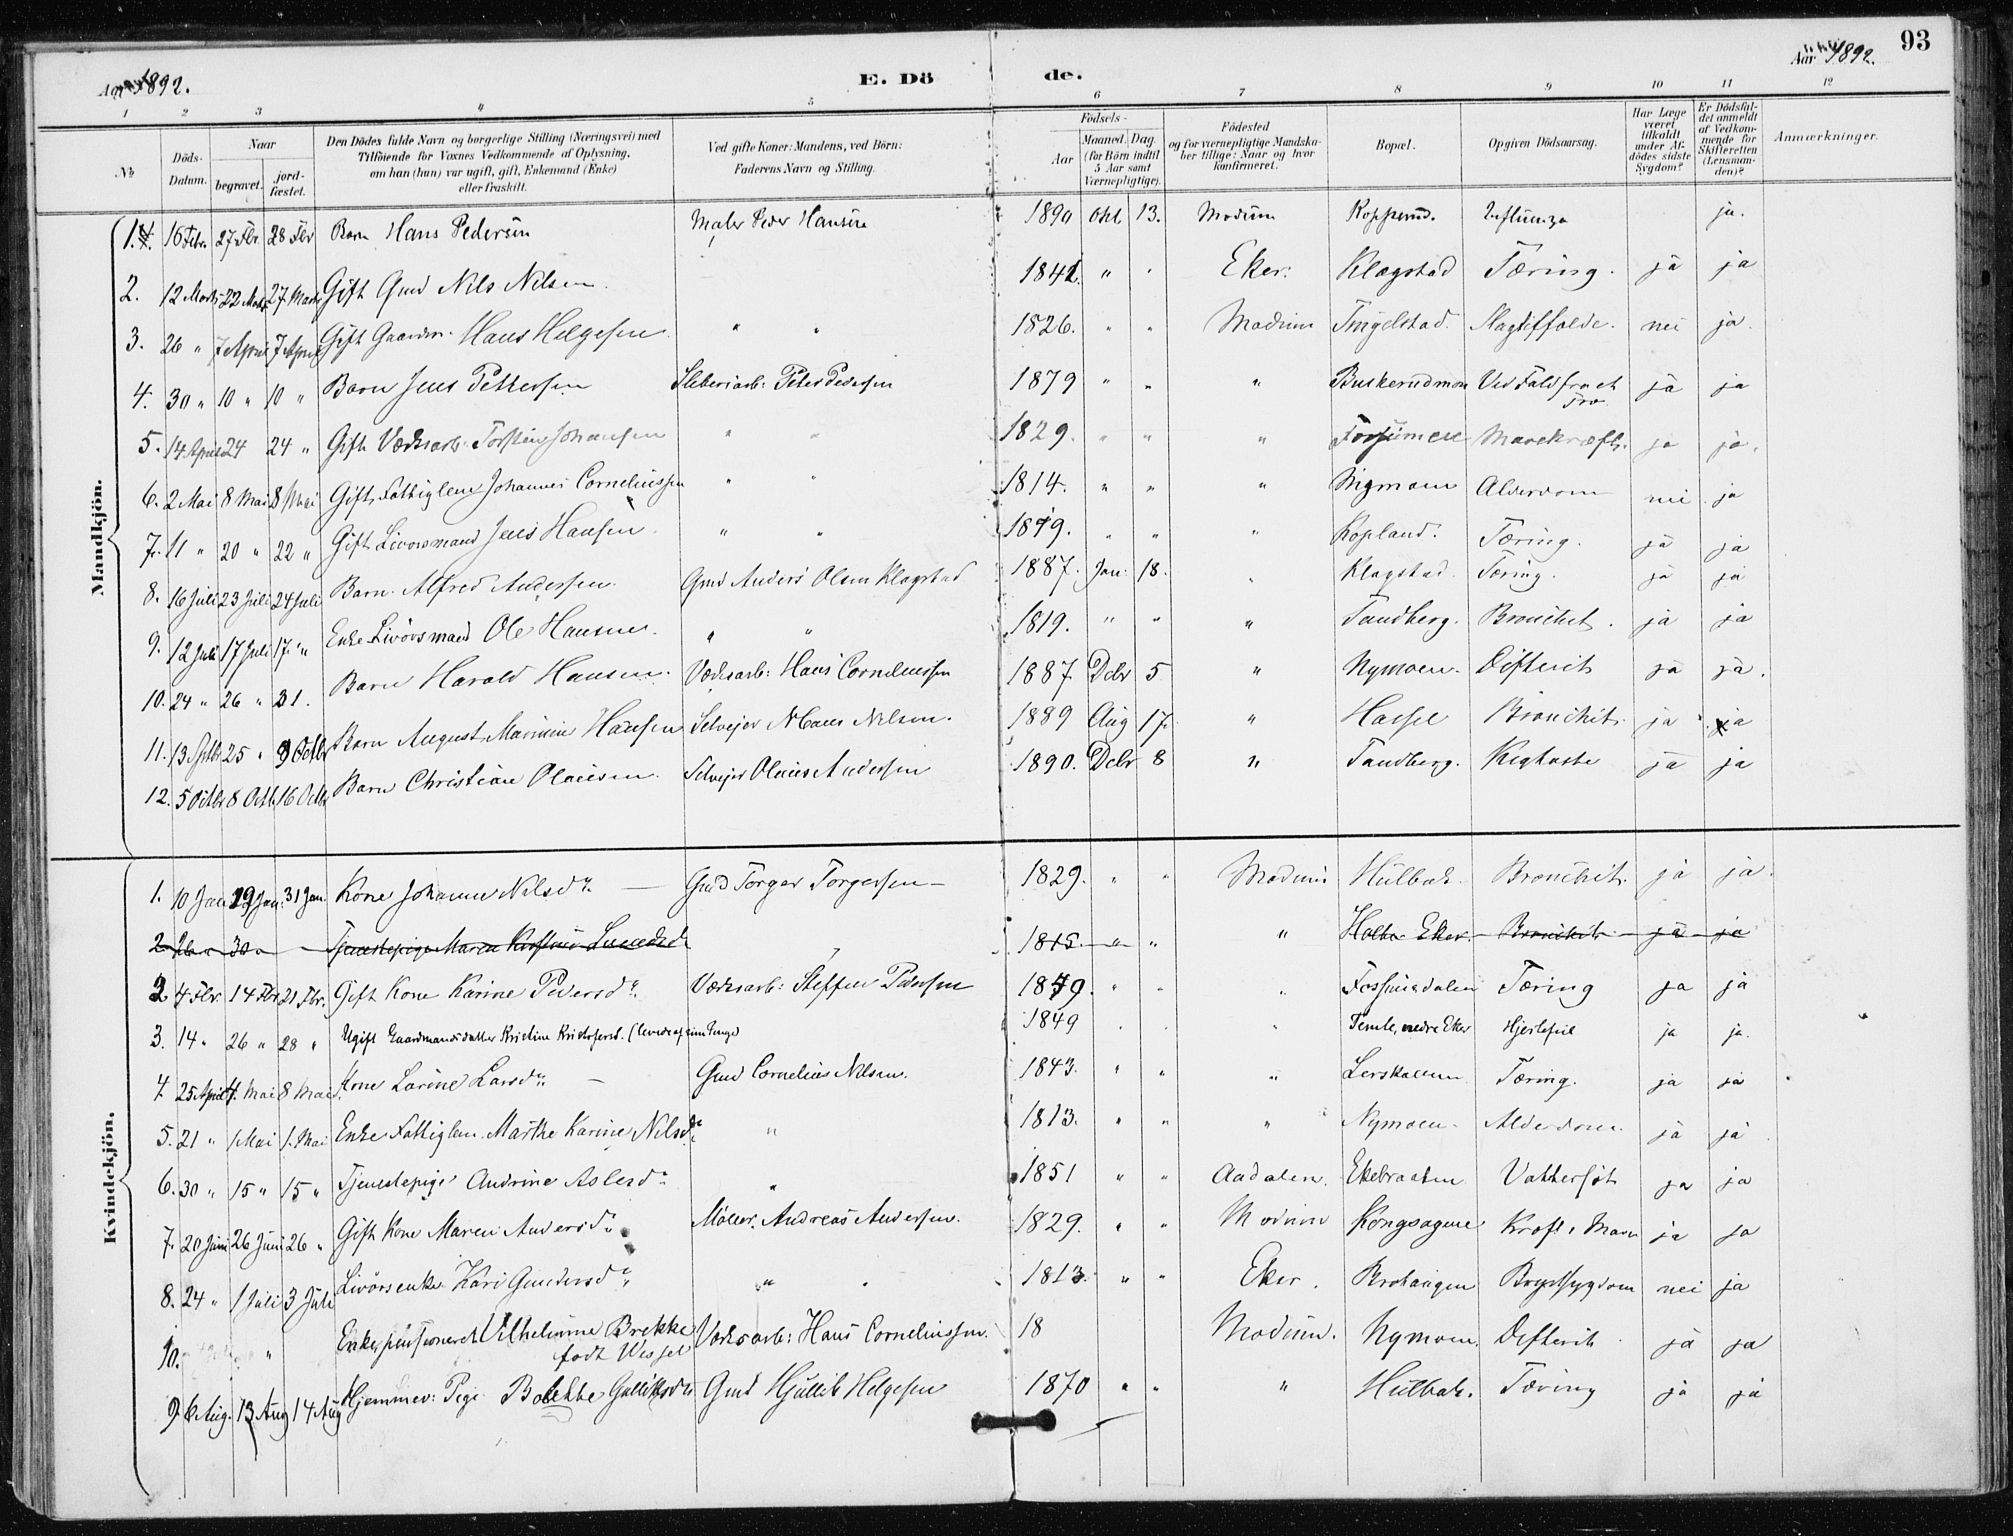 93
Aar 1892.
E. Dö de.
Aar 1892.
1 2 3 4 5 6 7 8 9 10 11 12
No
Döds-Datum.
Naar
begravet.
jord-fæstet.
Den Dödes fulde Navn og borgerlige Stilling (Næringsvei) med
Tilföiende for Voxnes Vedkommende af Oplysning,
om han (hun) var ugift, gift, Enkemand (Enke)
eller fraskilt.
Ved gifte Koner: Mandens, ved Börn:
Faderens Navn og Stilling.
Födsels-
Aar
Maaned. Dag.
(for Börn indtil
5 Aar samt
Værnepligtige).
Födested
og for værnepligtige Mandska-
ber tillige: Naar og hvor
konfirmeret.
Bopæl.
Opgiven Dödsaarsag.
Har Læge
været
tilkaldt
under Af-
dödes sidste
Sygdom?
Er Dödsfal-
det anmeldt
af Vedkom-
mende for
Skifteretten
(Lensman-
den)?
Anmærkninger.
Mandkjön.
1. 16 Febr. 27 Fbr. 28 Fbr Barn Hans Pedersen Maler Peder Hansen 1890 Okt. 13. Modum Kopperud. Influenza ja.
2. 12 Marts 22 Marts 27 Marts Gift Gmd Nils Nilsen 1841. " " Eker. Klogstad Tæring. ja ja
3. 26 " 7 April 7 April Gift Gaardm. Hans Helgesen " " 1826. " " Modum Tingelstad. Slagtilfælde. nei ja.
4. 30 " 10 " 10 " Barn Jens Pettersen Sliberiarb: Peter Pedersen 1879 " " " Buskerudmoen Ved Fald fra et Træ. ja ja
5. 14 April 24 24 " Gift Værksarb. Torstein Johansen " " 1829. " " " Fossumeie Mavekræft. ja ja.
6. 2 Mai 8 Mai 8 Mai Gift Fattiglem Johannes Corneliussen " " 1814. " " " Nymoen Alderdom nei ja
7. 11 " 20 " 22 " Gift Livörsmand Jens Hansen. " " 1819. " " " Kopland. Tæring. ja ja
8. 16 Juli 23 Juli 24 Juli Barn Alfred Andersen. Gmd Anders Olsen Klogstad 1887. Jan. 18. " Klogstad. Tæring. ja ja
9. 12 Juli 17 Juli 17 " Enke Livörsmand Ole Hansen. " " 1819. " " " Tandberg. Bronchit. ja ja
10. 24 " 26 " 31. Barn Harald Hansen. Værksarb: Hans Corneliussen 1887 Debr 5 " Nymoen. Difterit ja ja.
11. 13 Septbr 25 " 9 Octbr Barn August Marinius Hansen Selvejer Hans Nilsen. 1889 Aug 17. " Hassel Bronchit. ja ja
12. 5 Octbr 8 Octb. 16 Octbr Barn Christian Olausen. Selvejer Olaus Andersen 1890. Debr 8 " Tandberg. Kighoste ja ja
Kvindekjön.
1. 10 Jan 19 Jan. 31 Jan. Kone Johanne Nilsdr. — Gmd Torger Torgersen — 1829. " " Modum Hulbak. Bronchit. ja ja.
2 26 " 30 " Tjenestepige Maren Kirstine " 1815. " " " Eker. Bronchit. ja ja
2 4 Fbr. 14 Fbr. 21 Fbr. Gift Kone Karine Pedersdr. Værksarb: Steffen Pedersen 1859. " " " Fossumdalen Tæring ja ja
3. 14 " 26 " 28 " Ugift Gaardmandsdatter Kristine Kristofersd. (levede af sine Penge) 1849 " " " Temte, nedre Eker Hjertefeil ja ja.
4. 25 April 4. Mai 8 Mai. Kone Lorine Larsdr. — Gmd Cornelius Nilsen. 1843. " " " Lerskallen Tæring. ja ja
5. 21 " 1 Mai 1. Mai Enke Fattiglem Marthe Karine Nilsdr. " 1813. " " " Nymoen. Alderdom. ja ja
6. 30 " 15 " 15 " Tjenestepige Andrine Aslesdr. " 1851 " " Aadalen. Ekebraaten Vattersot ja ja
7. 20 Juni 26 Juni 26 " Gift Kone Maren Andersdr. Möller. Andreas Andersen. 1829. " " Modum Kongsagene Kræft i Maven ja ja
8. 24 " 1 Juli 3 Juli Livörsenke Kari Gundersdr. " " 1813. " " Eker. Brohaugen Brystsygdom nei ja
10. " Enke, pensioneret Vilhelmine Brekke
födt Wessel Værksarb: Hans Corneliussen. 18 Modum. Nymoen. Difterit ja ja
9. 6 Aug. 13 Aug 14 Aug Hjemmev: Pige Bolette Gulliksdr Gmd Gullik Helgesen 1870 " " " Hulbak. Tæring ja ja